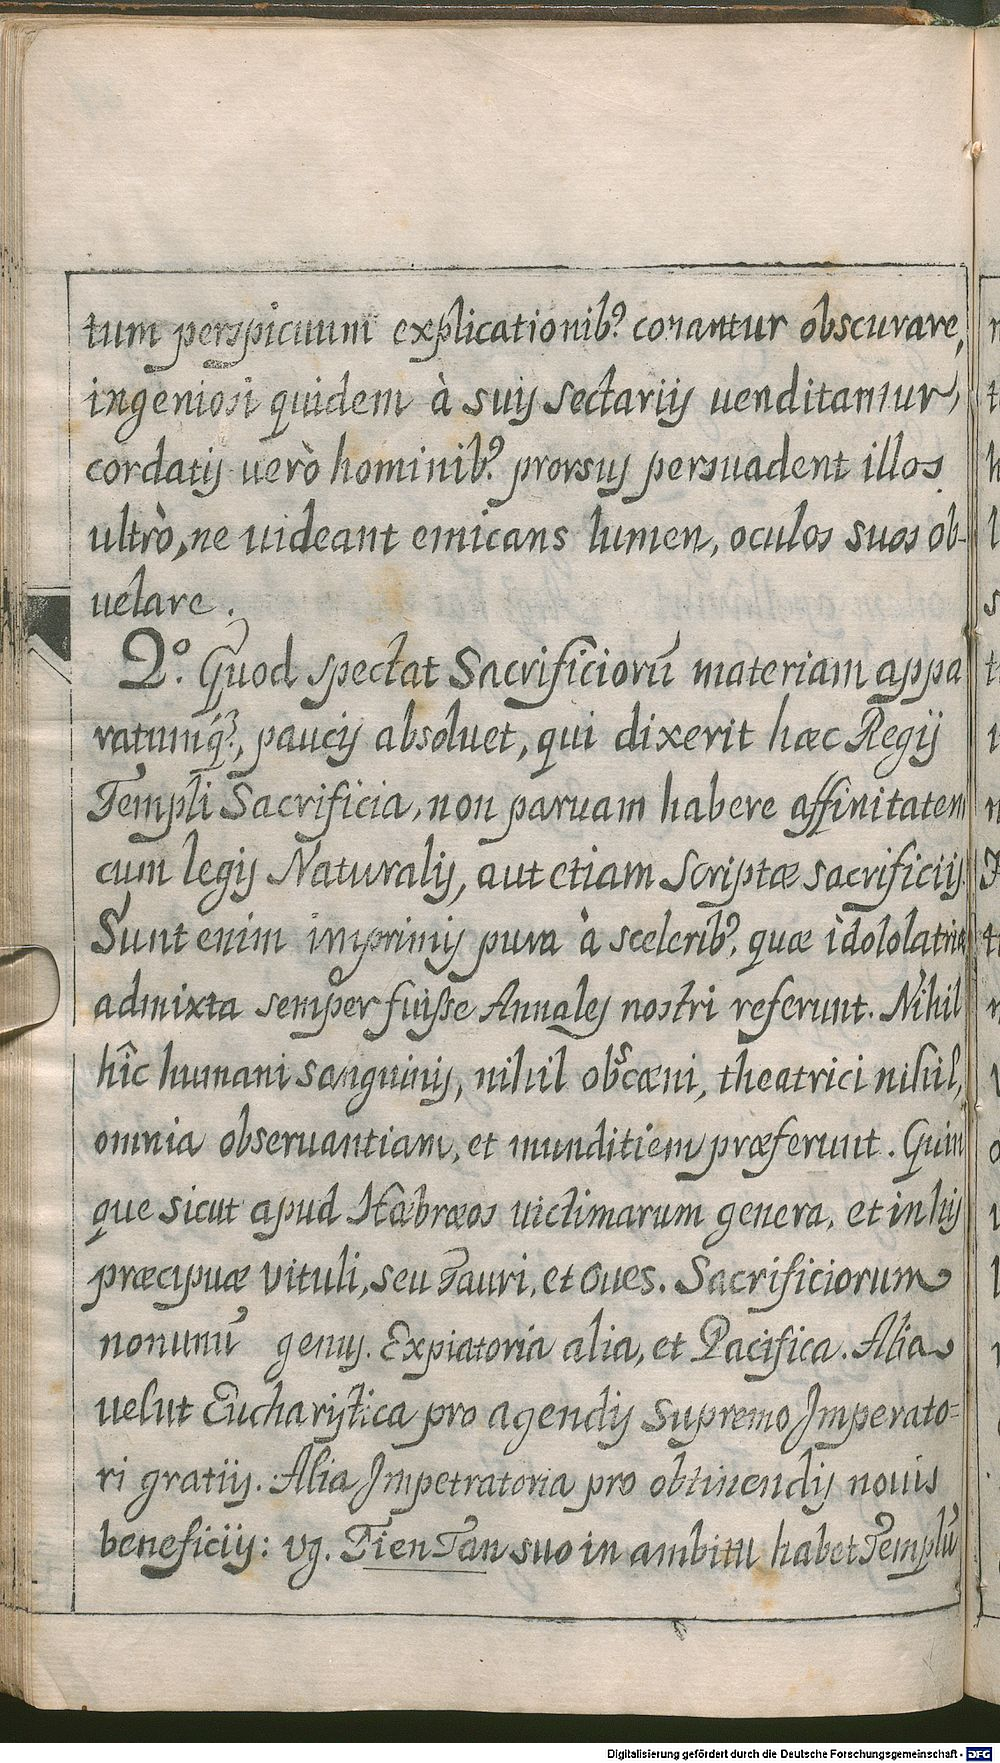 tum perspicuum explicationib⁹ conantur obscurare,
ingeniosi quidem à suis sectariis uenditantur,
cordatis uerò hominib⁹ prorsus persuadent illos
ultrò, ne uideant emicans lumen, oculos suos ob-
uelare.
2.º Quod spectat Sacrificiorũ materiam appa
ratumq₃, paucis absoluet, qui dixerit hæc Regij
Templi Sacrificia, non paruam habere affinitatem
cum legis Naturalis, aut etiam Scriptæ sacrificiis.
Sunt enim imprimis pura à scelerib⁹, quæ idololatriæ
admixta semper fuisse Annales nostri referunt. Nihil
hîc humani sanguinis, nihil obscæni, theatrici nihil,
omnia obseruantiam, et munditiem præferunt. Quin
que sicut apud Hæbræos uictimarum genera, et in his
præcipuæ vituli, seu Tauri, et Oues. Sacrificiorum
nonunũ genus. Expiatoria alia, et Pacifica. Alia
uelut Eucharistica pro agendis Supremo Imperato=
ri gratiis. Alia Impetratoria pro obtinendis nouis
beneficiis: vg. Tien Tan suo in ambitu habet Templũ
Digitalisierung gefördert durch die Deutsche Forschungsgemeinschaft - DFG